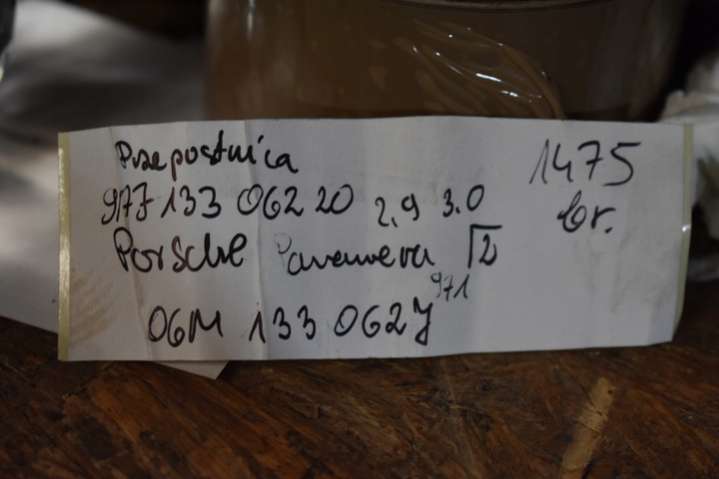 Przepustnica
9A7 133 062 20 2,9 3.0
Porsche Panamera II
971
06M 133 062J
1475
br.